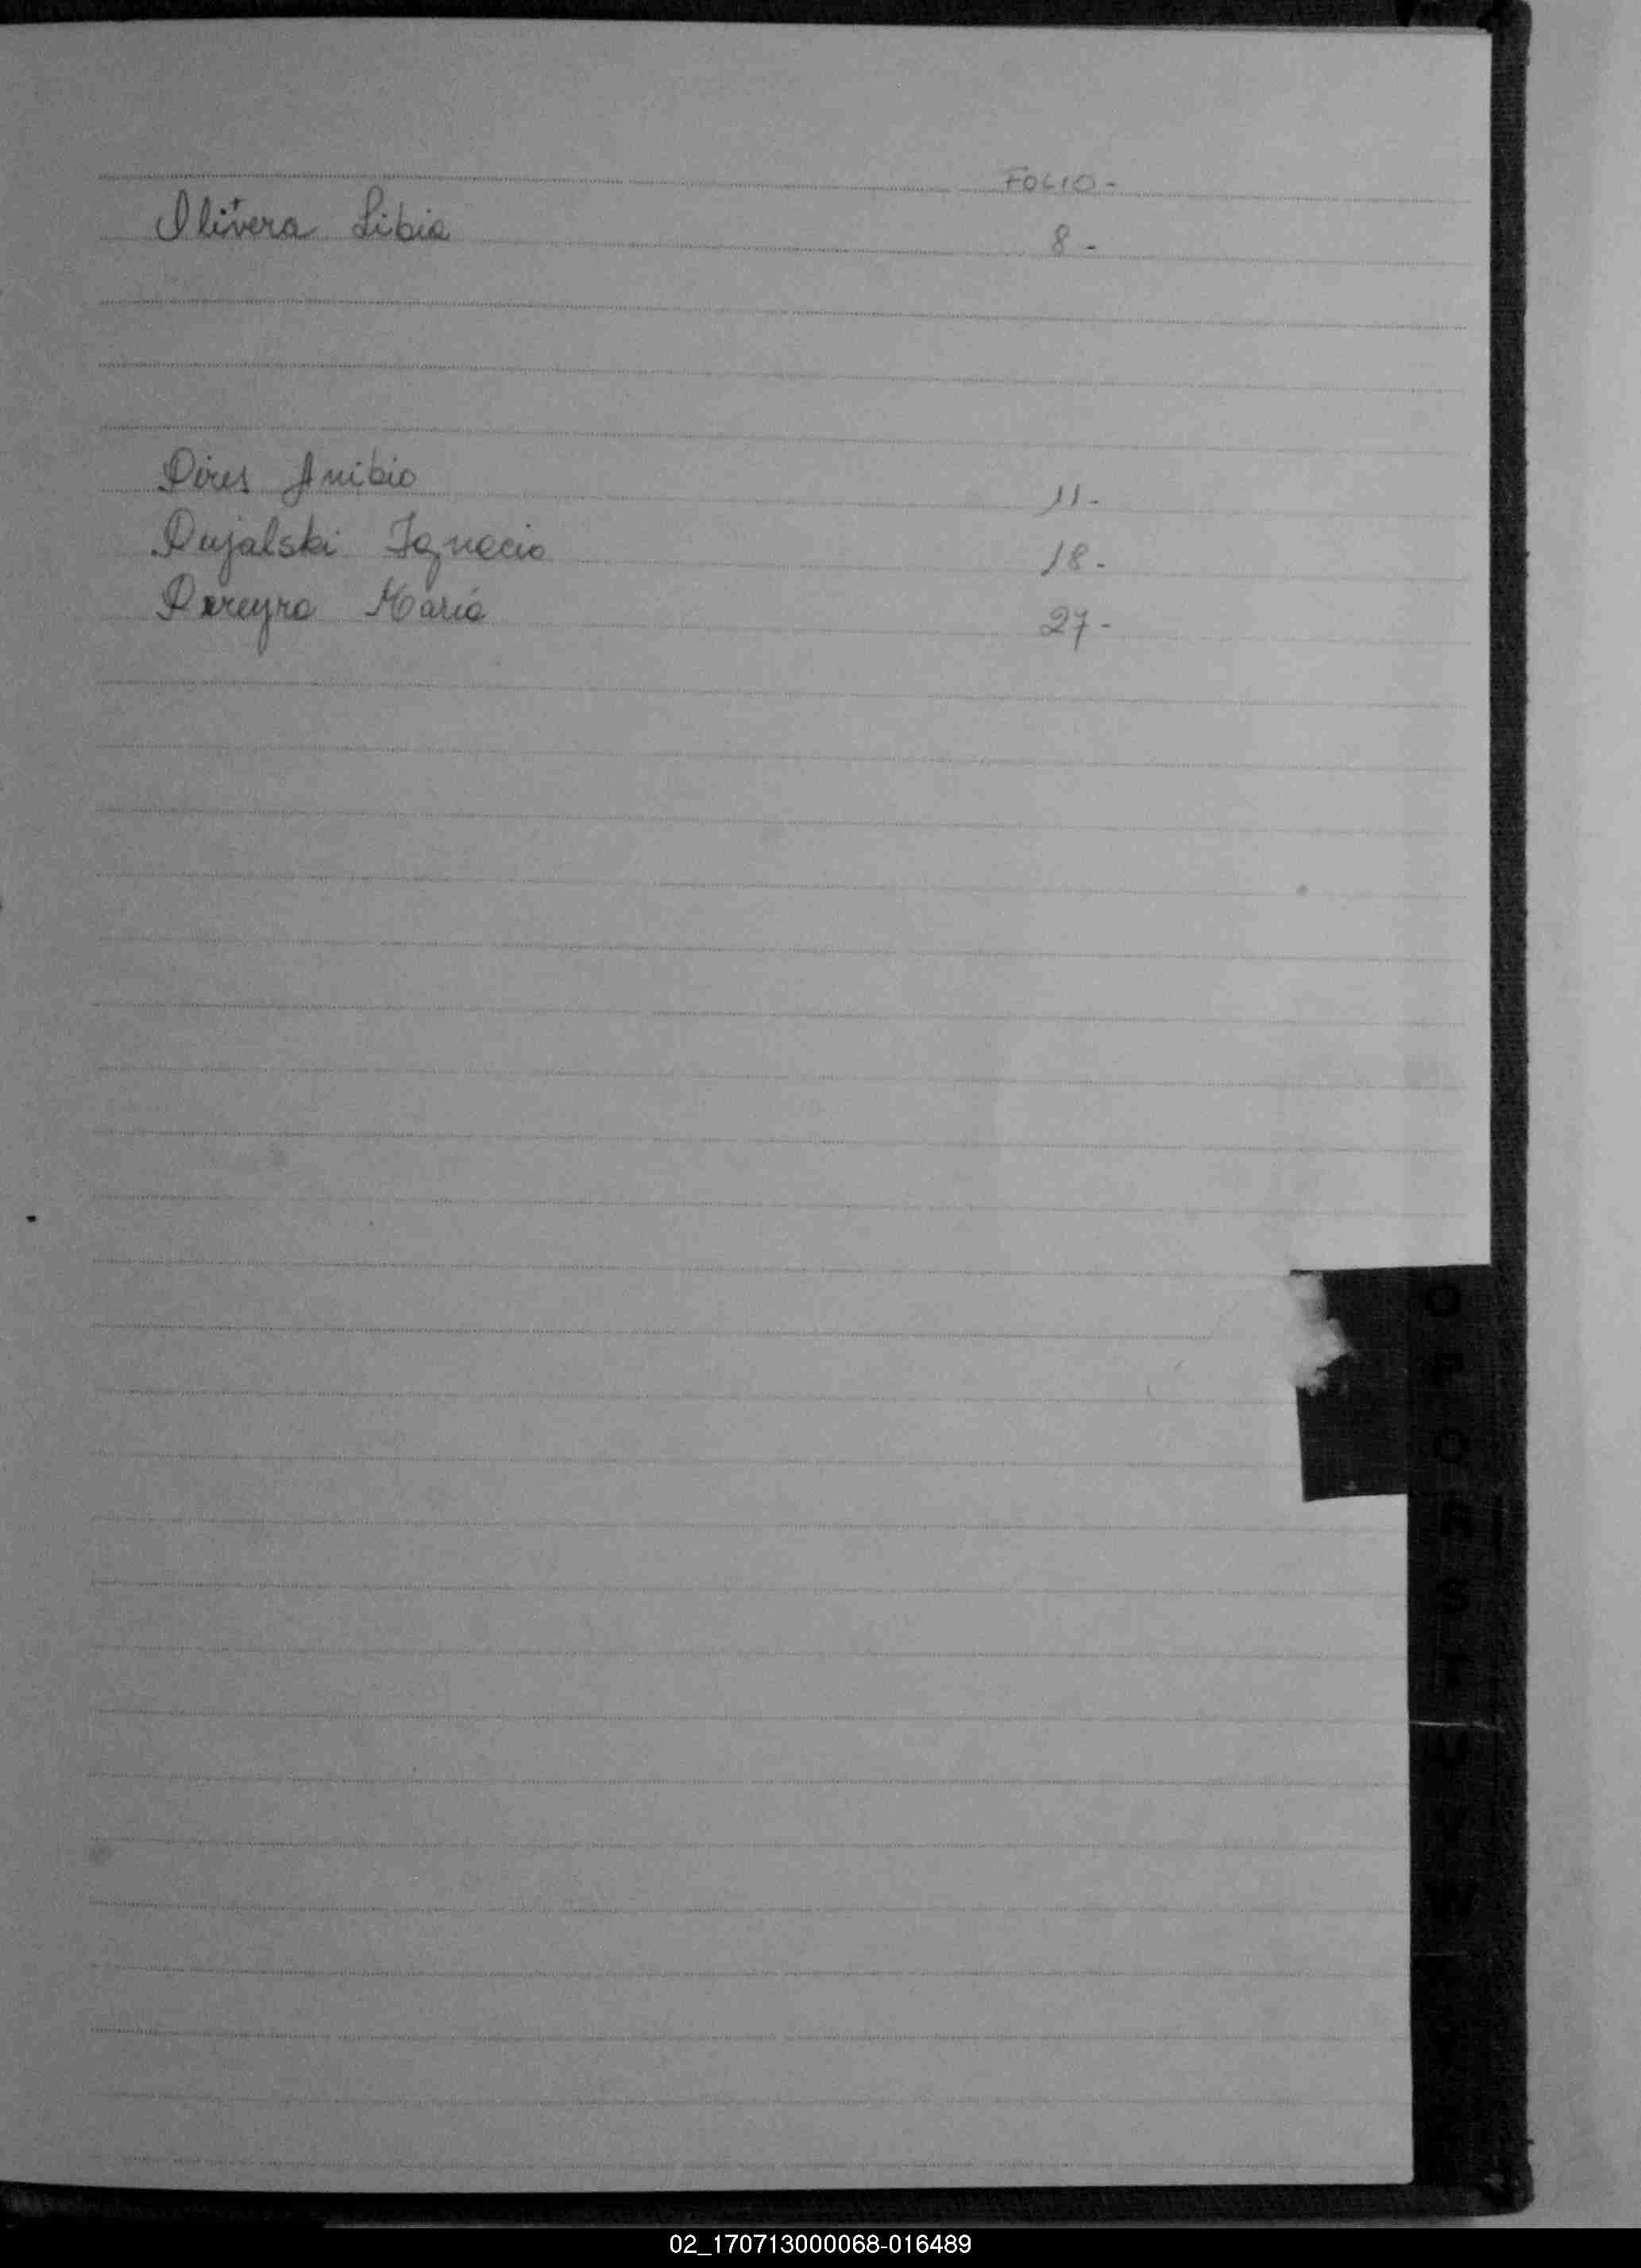 FOLIO -
Olivera Libia 8 -
Pires Anibio 11 -
Pujalski Ignacio 18 -
Pereyra María 27 -
O
P
Q
R
S
T
U
V
W
02_170713000068-016489